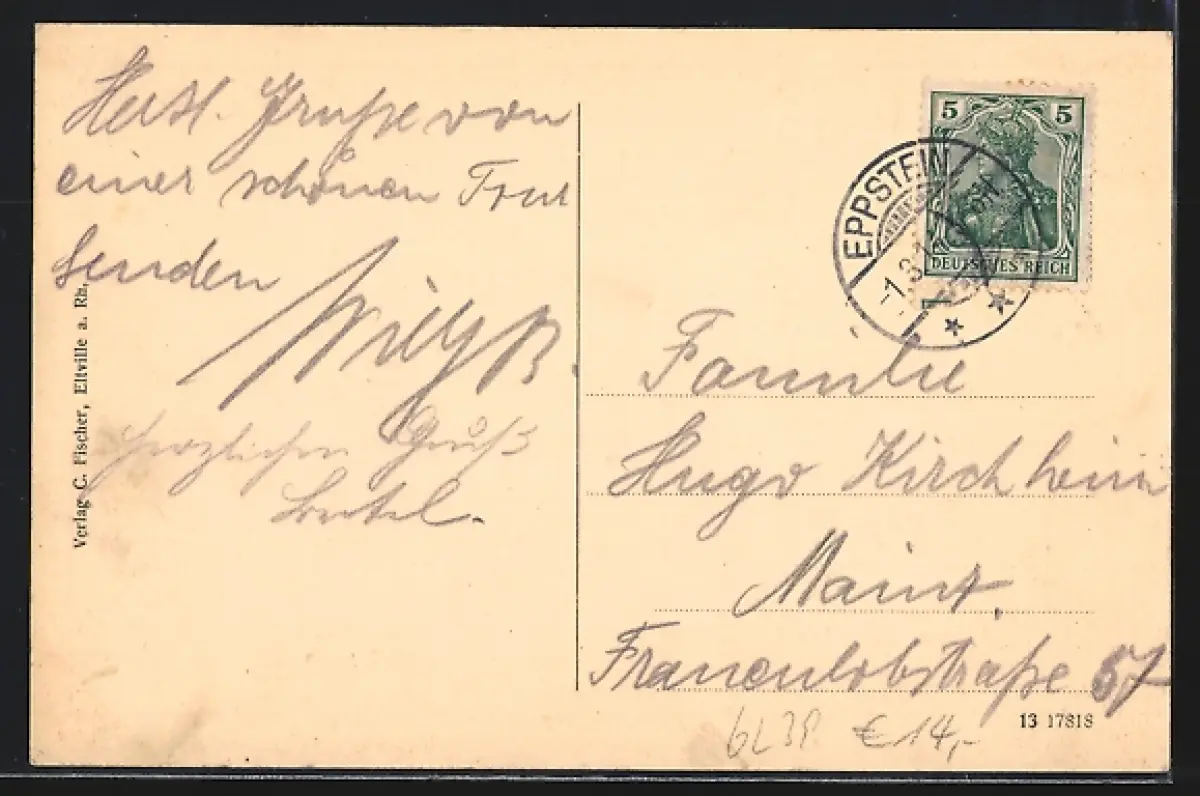 Herzl. Grüße von
einer schönen Tour
senden
Willy B.
herzlichen Gruß
Verlag C. Fischer, Eltville a. Rh.
5 5
DEUTSCHES REICH
EPPSTEIN
Familie
Hugo Kirchheim
Mainz,
Frauenlobstraße 57
13 17818
€ 14,-